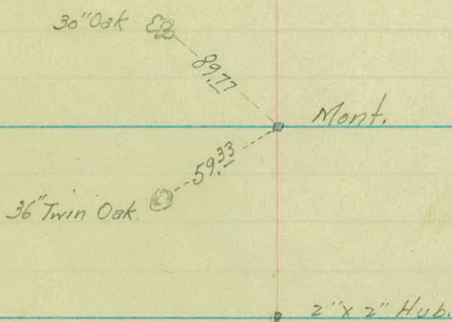 30" Oak
89.77
Mont.
59.33
36" Twin Oak.
2" x 2" Hub.